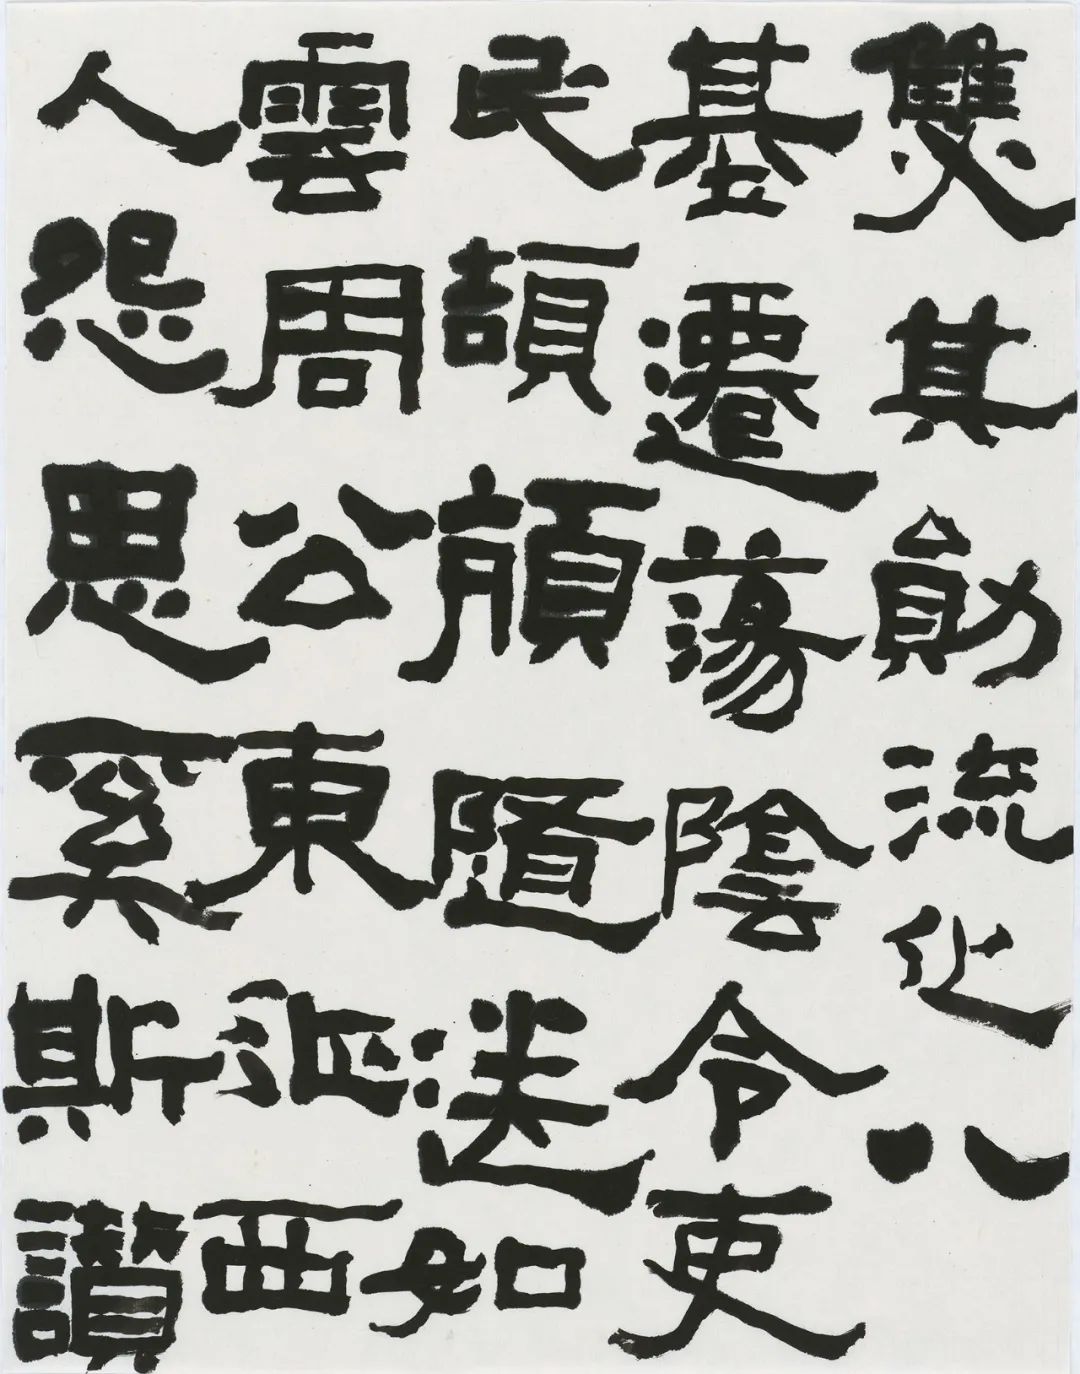 雙其勛流化八
基遷蕩陰令吏
民頡頏隨送如
雲周公東征西
人怨思奚斯讚